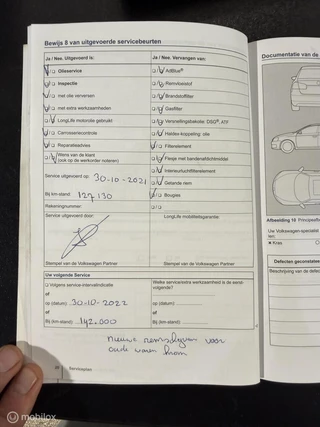 Bewijs 8 van uitgevoerde servicebeurten
Ja / Nee, Uitgevoerd is:
Olieservice
Inspectie
met olie verversen
met extra werkzaamheden
LongLife motorolie gebruikt
Carrosseriecontrole
Reparatieadvies
Wens van de klant
(ook op de werkorder noteren)
Service uitgevoerd op: 30-10-2021
Bij km-stand: 127.130
Rekeningnummer:
Service uitgevoerd door:
Stempel van de Volkswagen Partner
Ja / Nee, Vervangen van:
AdBlue®
Remvloeistof
Brandstoffilter
Gasfilter
Versnellingsbakolie: DSG®, ATF
Haldex-koppeling: olie
Filterelement
Flesje met bandenafdichtmiddel
Interieurluchtfilterelement
Getande riem
Bougies
LongLife mobiliteitsgarantie:
Stempel van de Volkswagen Partner
Uw volgende Service
Volgens service-intervalindicatie
of
op (datum): 30-10-2022
of
Bij (km-stand): 142.000
Welke service/extra werkzaamheid is de eerst-
volgende?
op (datum):
of
Bij (km-stand):
nieuwe remschijven voor
oude waren krom
Serviceplan
Documentatie van de
Afbeelding 10
Uw Volkswagen-specialist
Kras
Defecten geconstateerd
Beschrijving van de defect
mobilox